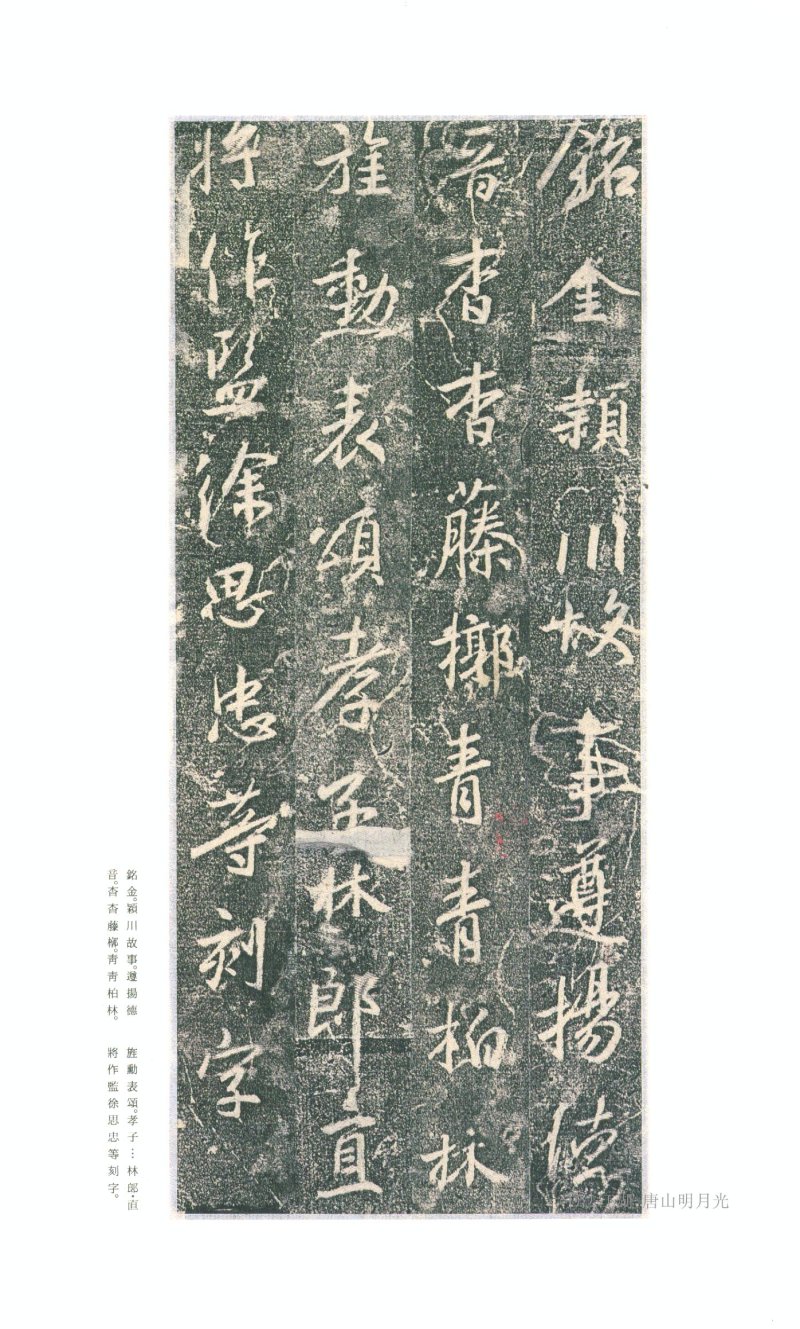 銘金頴川故事遵揚德
音杳杳藤槨青青柏林
旌勳表頌孝子林郎直
將作監徐思忠等刻字
銘金。穎川故事。遵揚德
音。杳杳藤槨。青青柏林。
旌勳表頌。孝子…林郎·直
將作監徐思忠等刻字。
唐山明月光